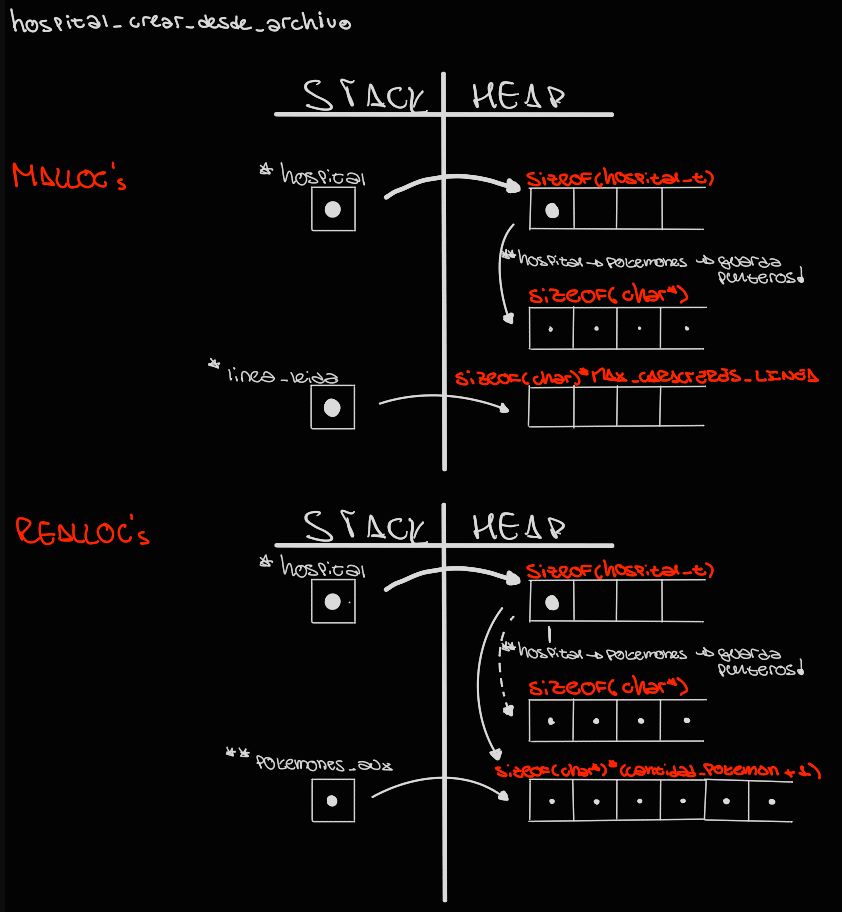 hospital_crear_desde_archivo
STACK HEAP
MALLOC's
* hospital
sizeof(hospital_t)
**hospital→pokemones → guarda
punteros!
sizeof(char*)
* linea_leida
sizeof(char)*MAX_CARACTERES_LINEA
REALLOC's
STACK HEAP
* hospital
sizeof(hospital_t)
**hospital→pokemones → guarda
punteros!
sizeof(char*)
** pokemones_aux
sizeof(char*)*(cantidad_pokemon +1)